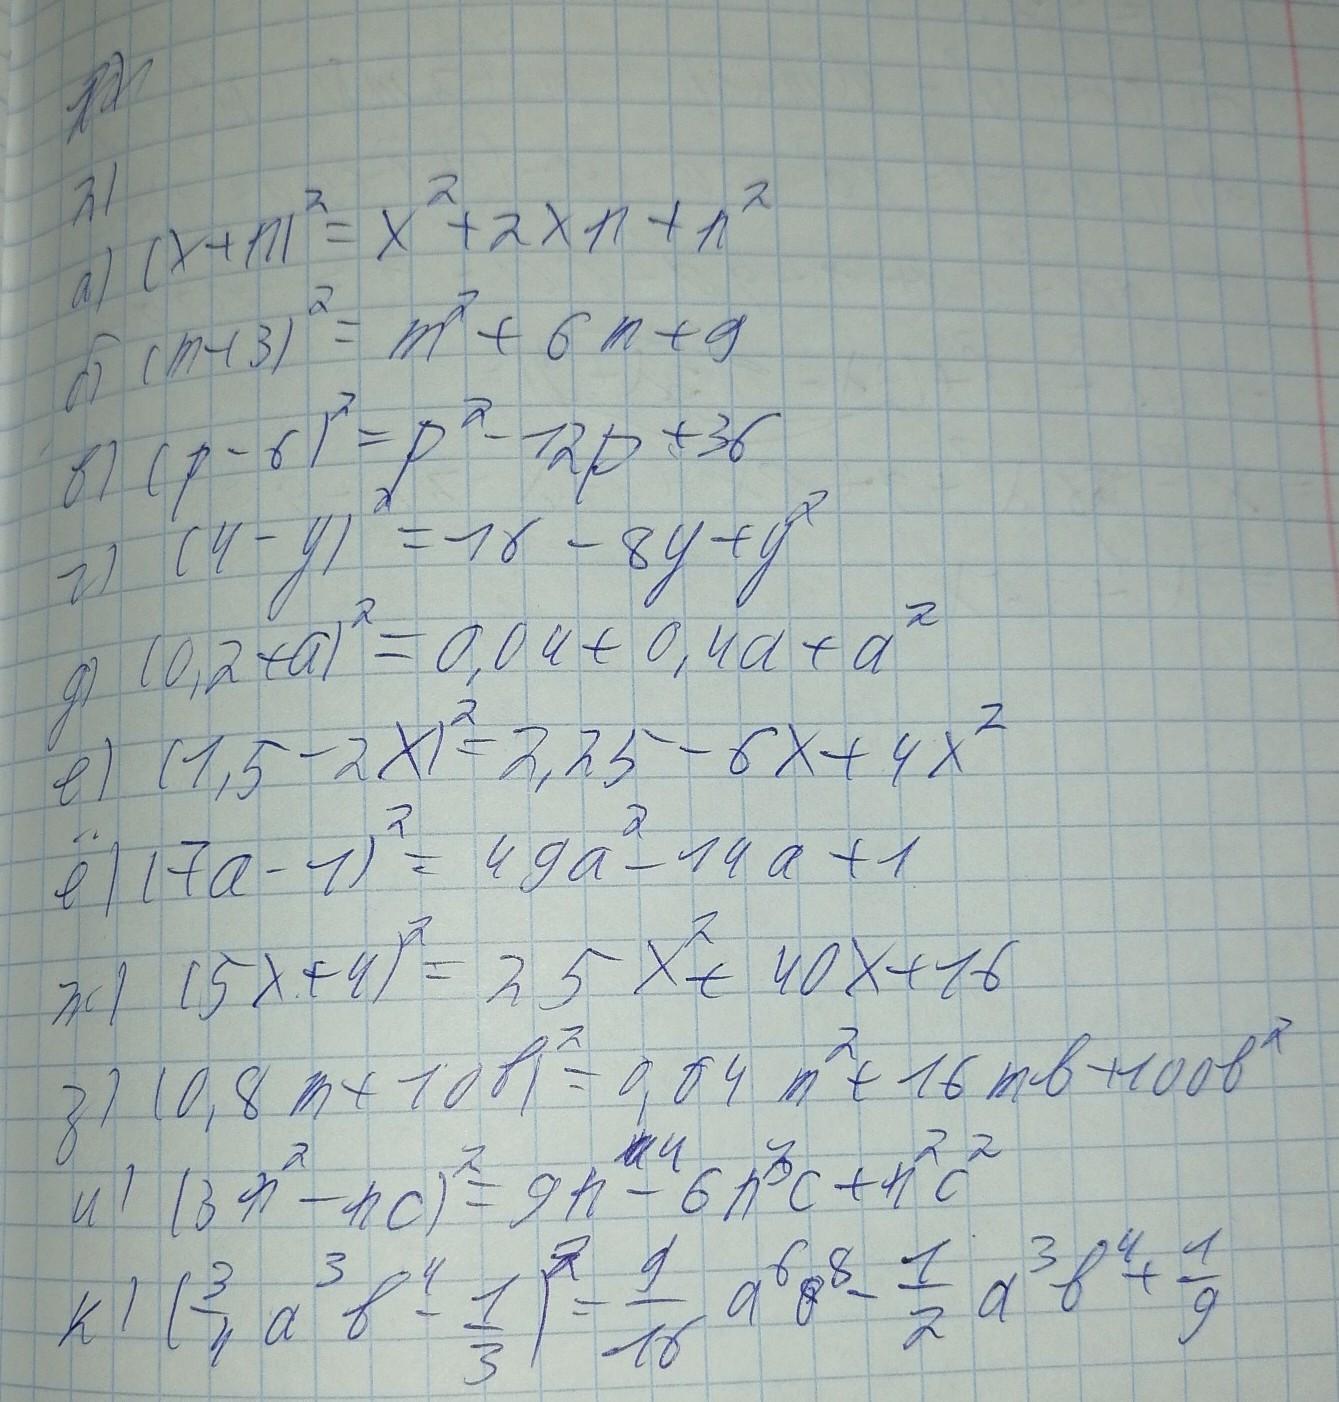 2)
а) (x+n)² = x² + 2xn + n²
б) (m+3)² = m² + 6m + 9
в) (p-6)² = p² - 12p + 36
г) (4-y)² = 16 - 8y + y²
д) (0,2+a)² = 0,04 + 0,4a + a²
е) (1,5-2x)² = 2,25 - 6x + 4x²
ё) (7a-1)² = 49a² - 14a + 1
ж) (5x+4)² = 25x² + 40x + 16
з) (0,8m+10b)² = 0,64m² + 16mb + 100b²
и) (3n²-nc)² = 9n⁴ - 6n³c + n²c²
к) (3/4 a³b⁴ - 1/3)² = 9/16 a⁶b⁸ - 1/2 a³b⁴ + 1/9